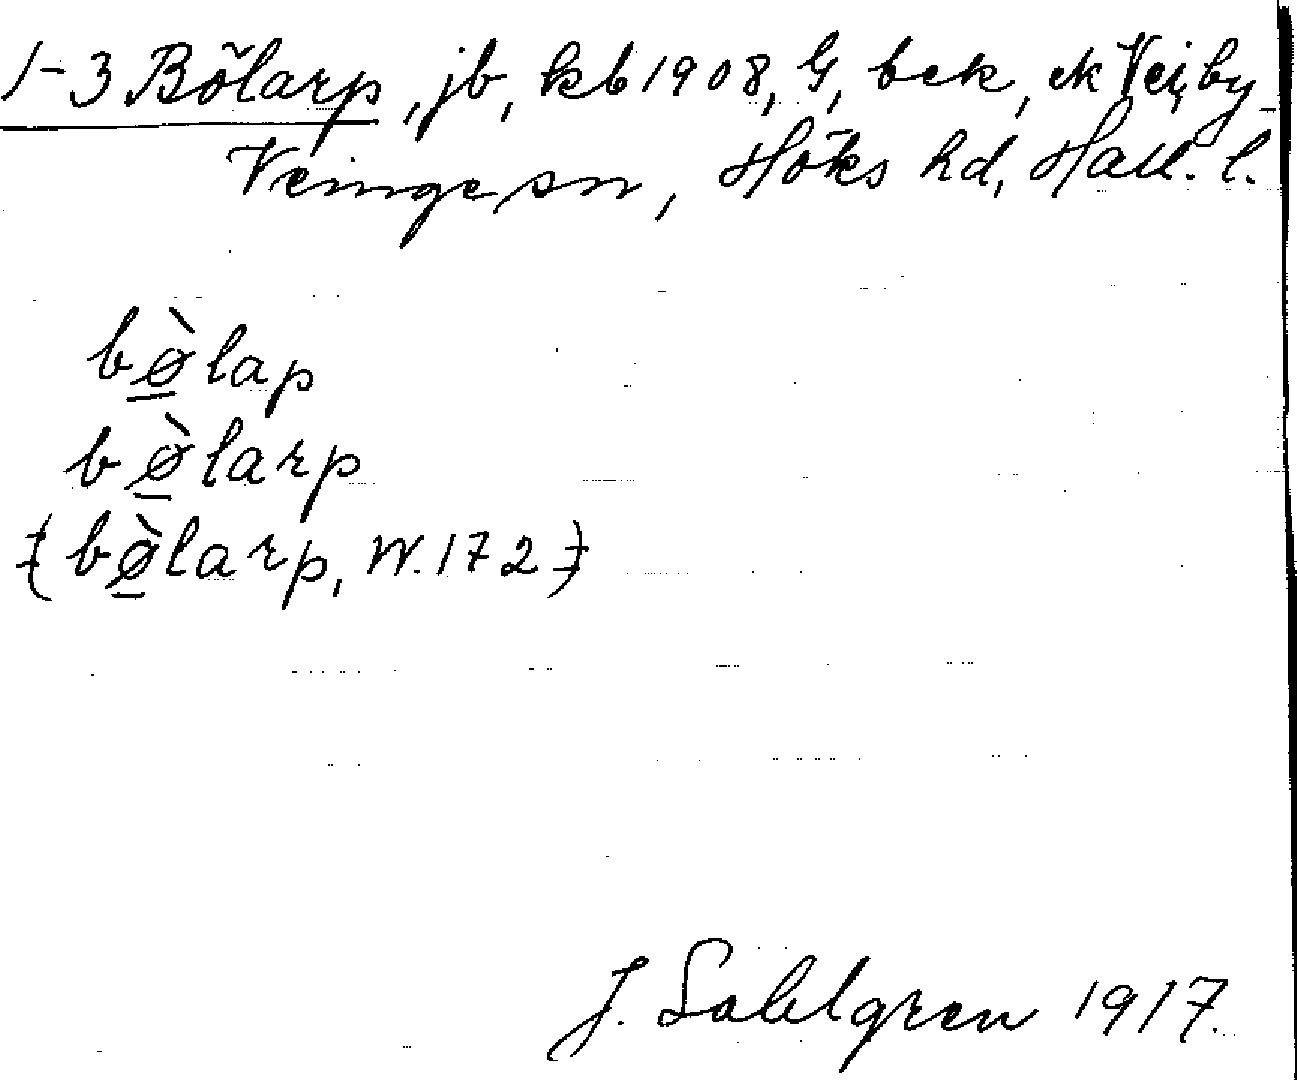 1-3 Bölarp, jb, kb 1908, G, bek, ek Vejby
Veinge sn, Höks hd, Hall. l.
bø̲̀lap
bø̲̀larp
(bø̲̀larp, W. 172)
J. Sahlgren 1917.